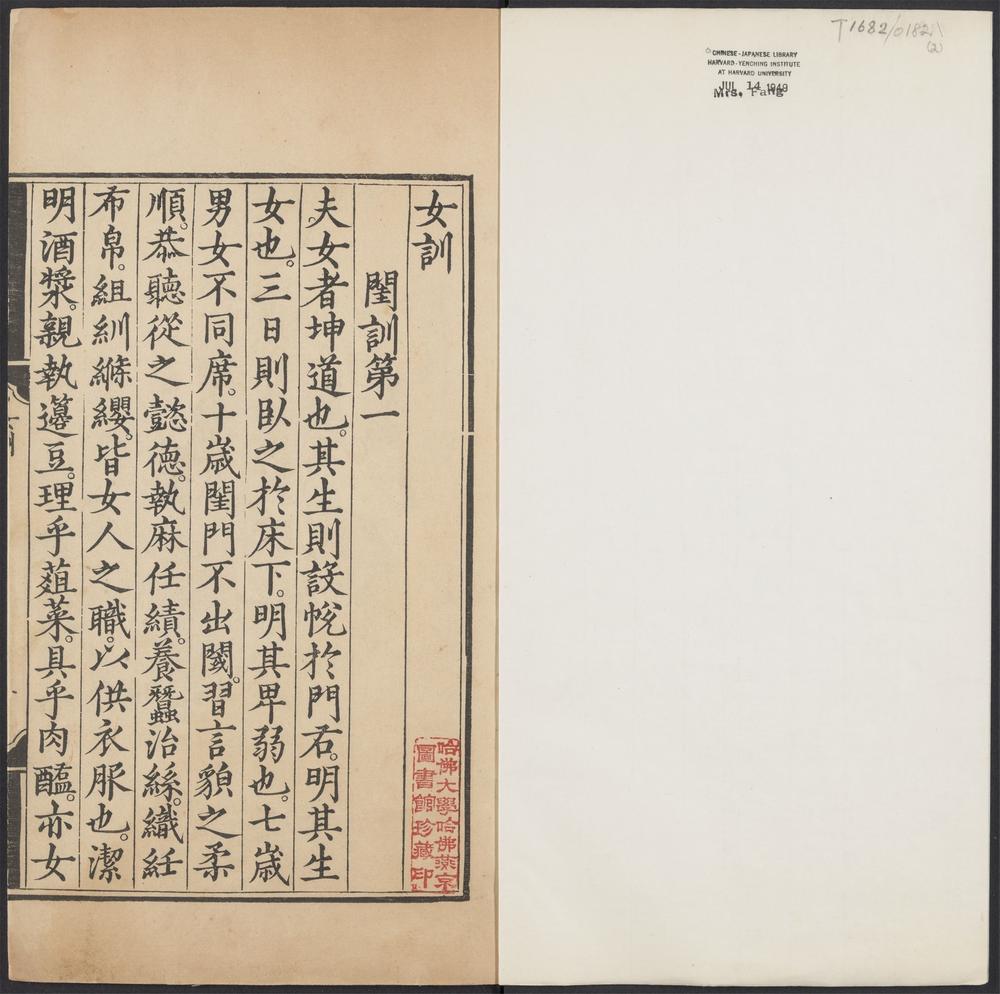 T1682/0182
(2)
CHINESE-JAPANESE LIBRARY
HARVARD-YENCHING INSTITUTE
AT HARVARD UNIVERSITY
JUL 14 1949
Mrs. Fang
女訓
閨訓第一
夫女者坤道也。其生則設帨於門右。明其生
女也。三日則臥之於床下。明其卑弱也。七歲
男女不同席。十歲閨門不出閾。習言貌之柔
順。恭聽從之懿德。執麻任績。養蠶治絲。織紝
布帛。組紃絛纓。皆女人之職。以供衣服也。潔
明酒漿。親執籩豆。理乎葅菜。具乎肉醢。亦女
哈佛大學哈佛燕京
圖書館珍藏印